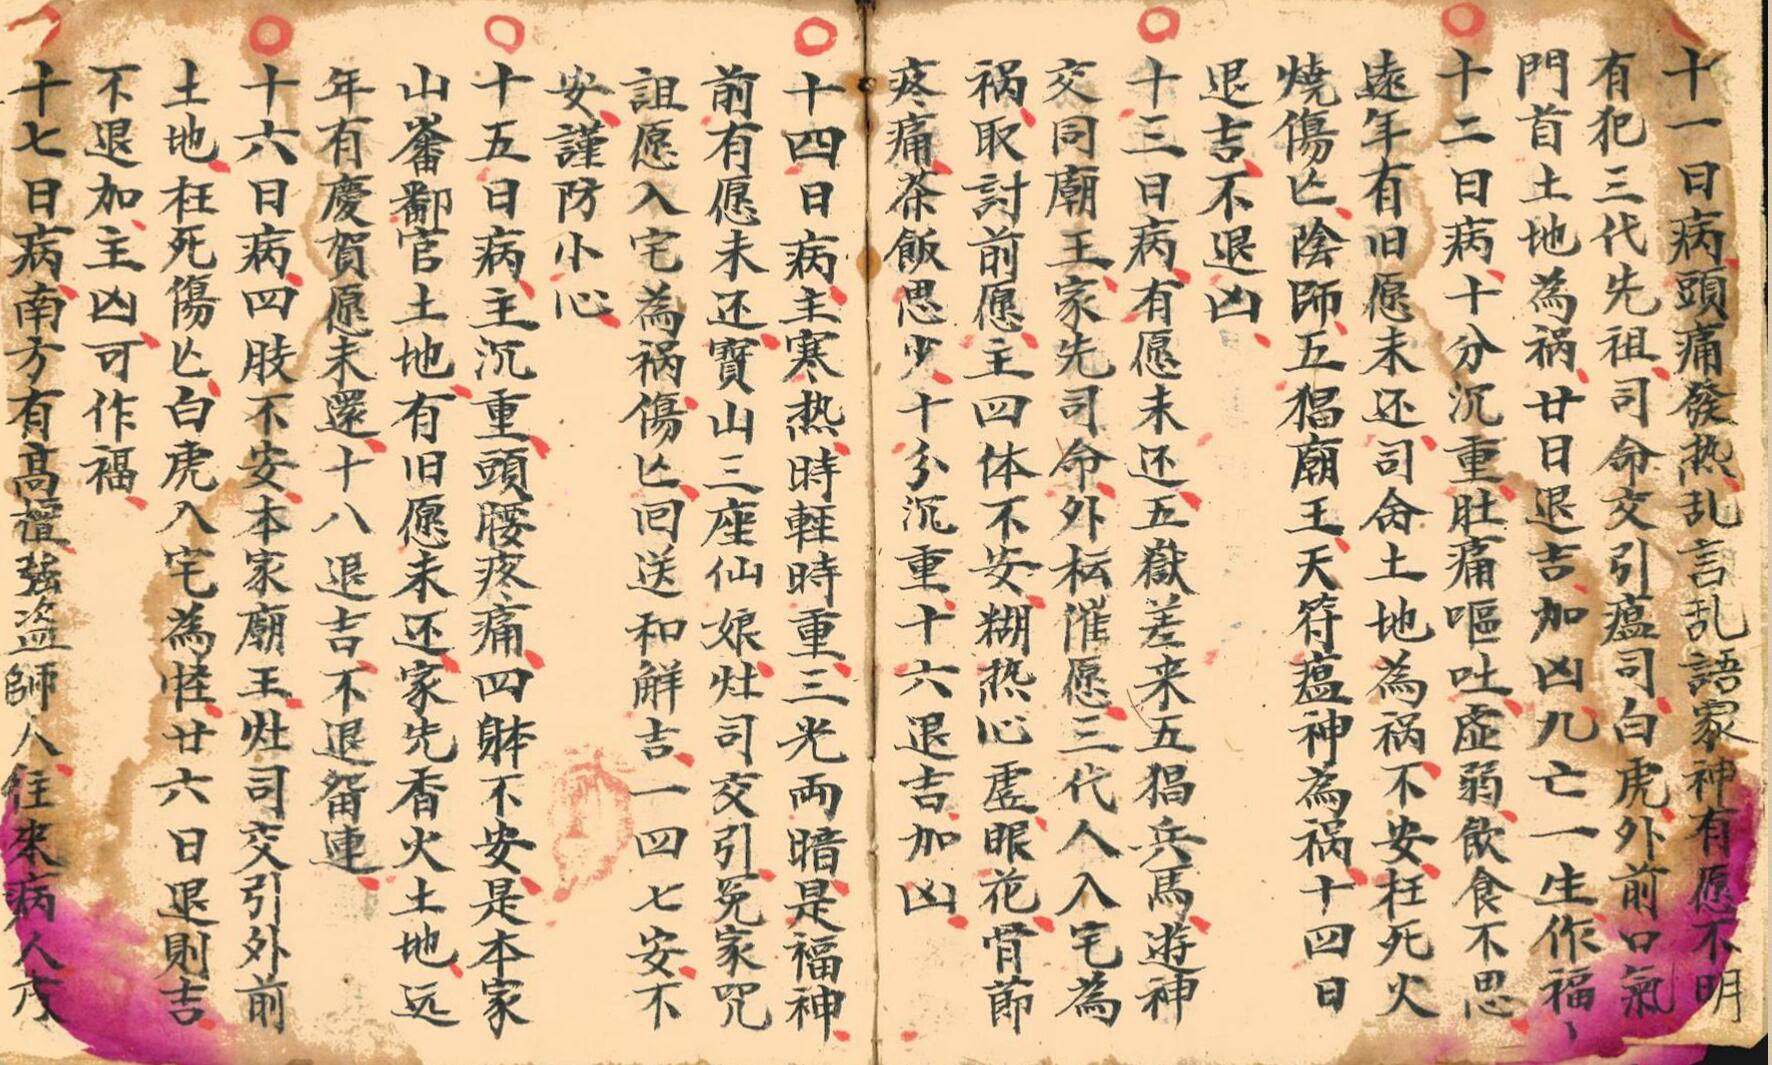 十一日病頭痛發热乱言乱語家神有愿不明
有犯三代先祖司命交引瘟司白虎外前口氣
門首土地為祸廿日退吉加凶九亡一生作福
十二日病十分沉重肚痛嘔吐虛弱飲食不思
遠年有旧愿未还司命土地為祸不安枉死火
燒傷亡陰師五猖廟王天符瘟神為祸十四日
退吉不退凶
十三日病有愿未还五嶽差来五猖兵馬遊神
交同廟王家先司命外杺催愿三代人入宅為
祸取討前愿主四体不安糊热心虛眼花骨節
疼痛茶飯思少十分沉重十六退吉加凶
十四日病主寒热時輕時重三光両暗是福神
前有愿未还寳山三座仙娘灶司交引冤家咒
詛愿入宅為祸傷亡回送和解吉一四七安不
安謹防小心
十五日病主沉重頭腰疼痛四躰不安是本家
山峯鄱官土地有旧愿未还家先香火土地远
年有慶賀愿未還十八退吉不退畱連
十六日病四肢不安本家廟王灶司交引外前
土地枉死傷亡白虎入宅為怪廿六日退則吉
不退加主凶可作福
十七日病南方有高壇強盗師人往來病人方